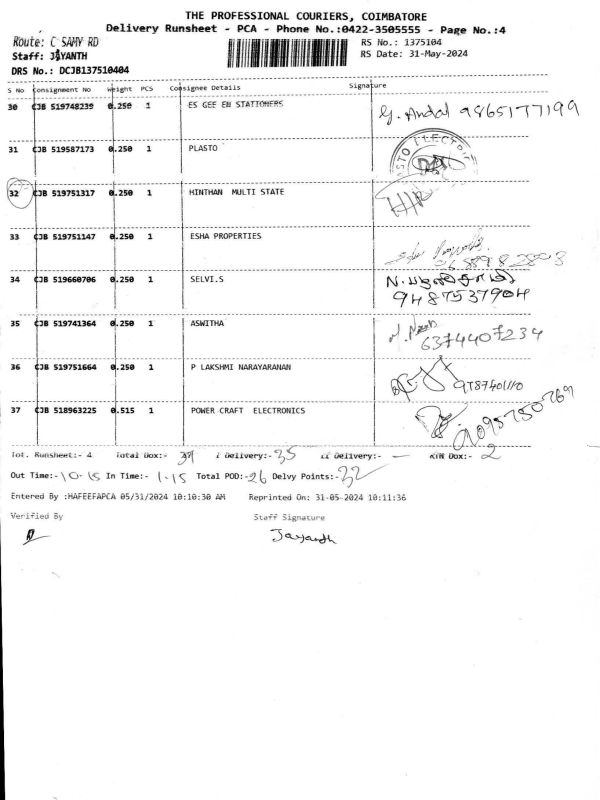 THE PROFESSIONAL COURIERS, COIMBATORE
Delivery Runsheet - PCA - Phone No.:0422-3505555 - Page No.:4
Route: C SAMY RD RS No.: 1375104
Staff: JAYANTH RS Date: 31-May-2024
DRS No.: DCJB137510404
S No Consignment No Weight PCS Consignee Details Signature
30 CJB 519748239 0.250 1 ES GEE EN STATIONERS G. Andal 9865177199
31 CJB 519587173 0.250 1 PLASTO
32 CJB 519751317 0.250 1 HINTHAN MULTI STATE
33 CJB 519751147 0.250 1 ESHA PROPERTIES
34 CJB 519660706 0.250 1 SELVI.S
9487537904
35 CJB 519741364 0.250 1 ASWITHA
6374407234
36 CJB 519751664 0.250 1 P LAKSHMI NARAYARANAN
37 CJB 518963225 0.515 1 POWER CRAFT ELECTRONICS
Tot. Runsheet:- 4 Total Dox:- I Delivery:- 35 II Delivery:- — RTN Dox:- 2
Out Time:- 10-15 In Time:- 1-15 Total POD:- 26 Delvy Points:- 32
Entered By :HAFEEFAPCA 05/31/2024 10:10:30 AM Reprinted On: 31-05-2024 10:11:36
Verified By Staff Signature
Jayanth